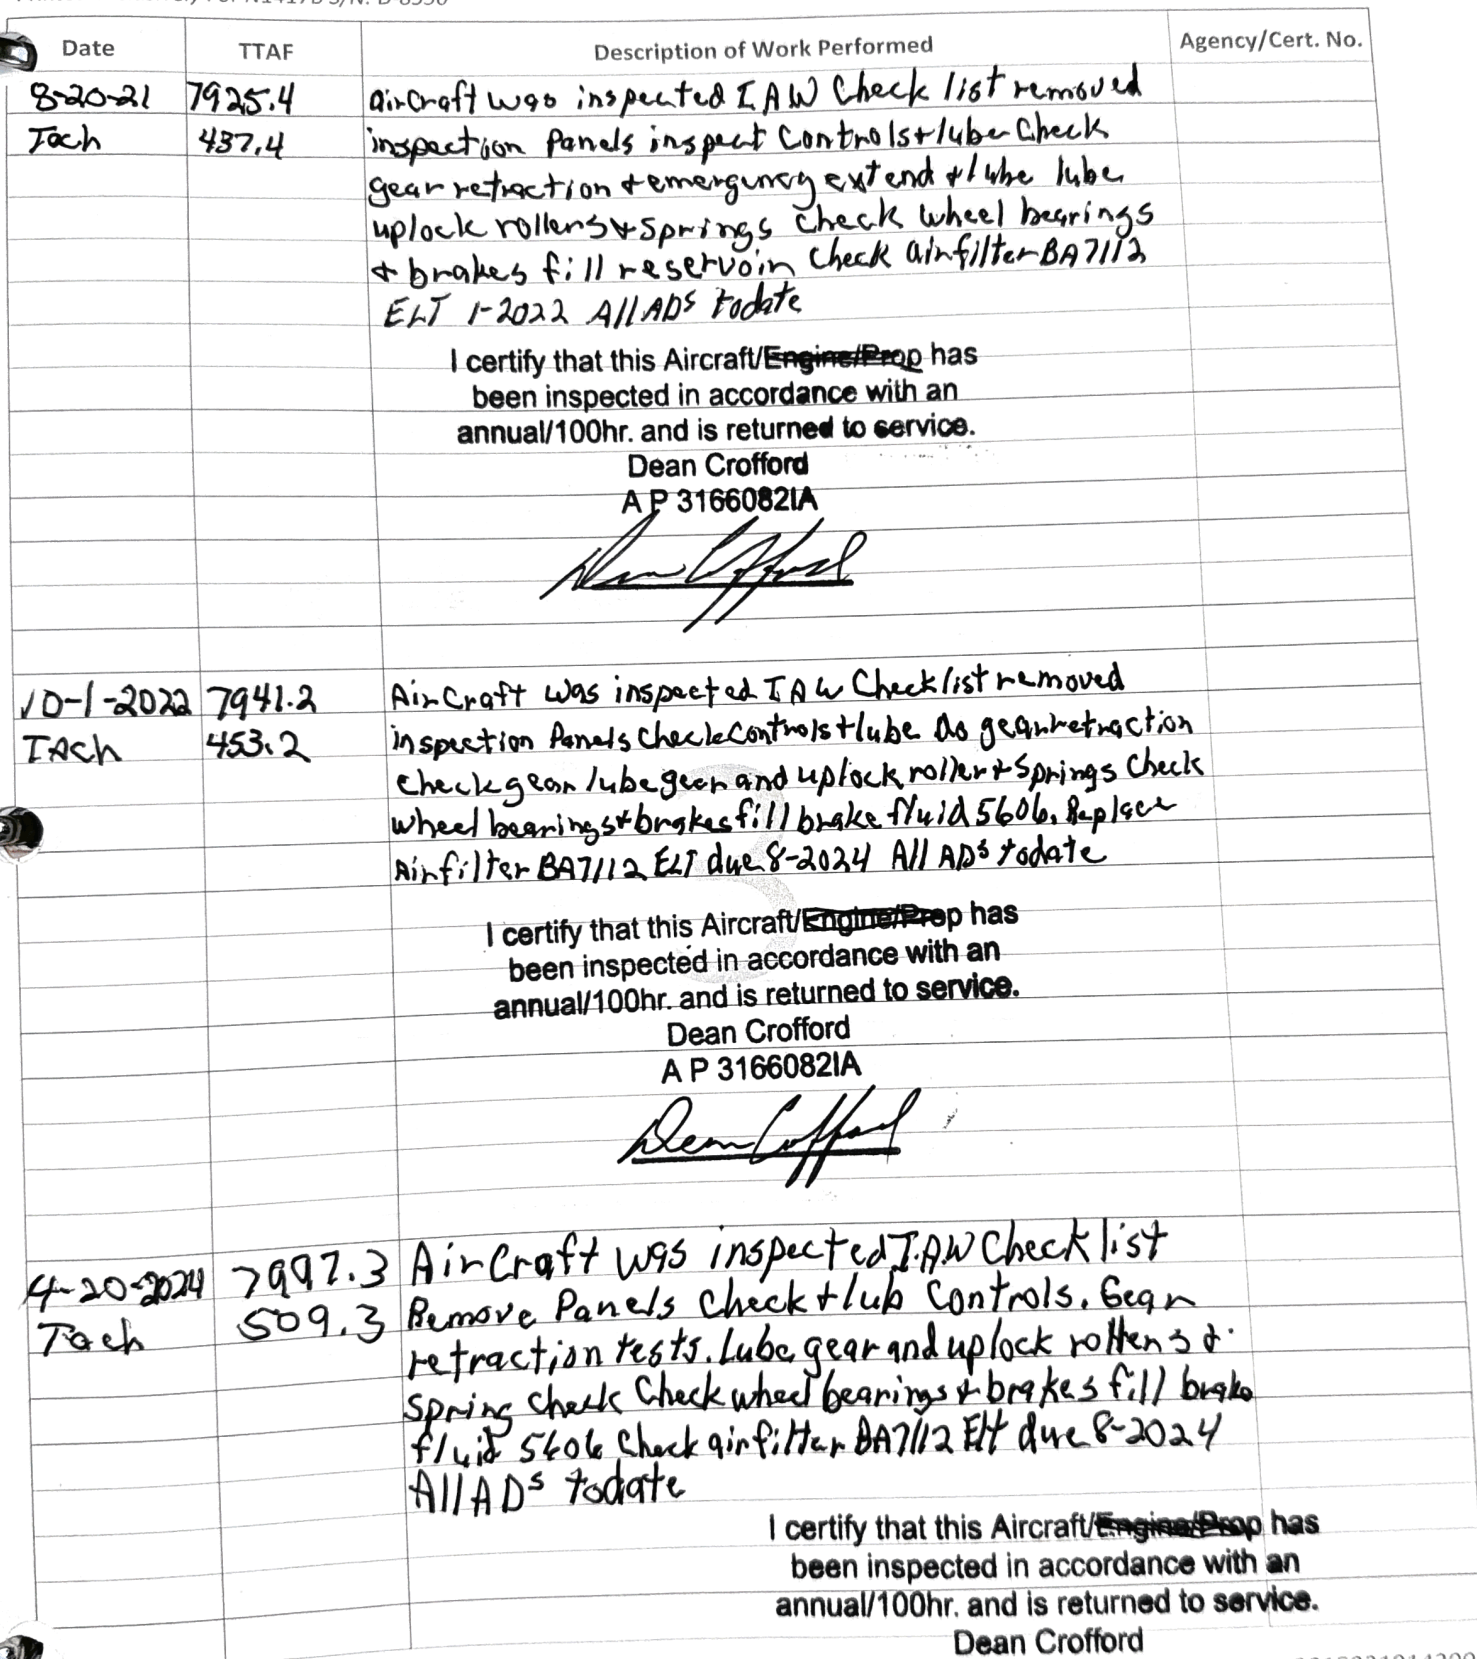 Date TTAF Description of Work Performed Agency/Cert. No.
8-20-21 7925.4 aircraft was inspected IAW Check list removed
Tach 437.4 inspection Panels inspect Controls + lube Check
gear retraction + emergency extend + lube lube
uplock rollers + springs check wheel bearings
+ brakes fill reservoir check airfilter BA7112
ELT 1-2022 All ADs todate
I certify that this Aircraft/Engine/Prop has
been inspected in accordance with an
annual/100hr. and is returned to service.
Dean Crofford
A P 3166082IA
Dean Crofford
10-1-2022 7941.2 AirCraft was inspected IAW Checklist removed
TAch 453.2 inspection Panels Check Controls + lube do gear retraction
check gear lube gear and uplock roller + springs Check
wheel bearings + brakes fill brake fluid 5606. Replace
Airfilter BA7112 ELT due 8-2024 All ADs todate
I certify that this Aircraft/Engine/Prop has
been inspected in accordance with an
annual/100hr. and is returned to service.
Dean Crofford
A P 3166082IA
Dean Crofford
4-20-2024 7997.3 AirCraft was inspected I.A.W Check list
Tach 509.3 Remove Panels Check + lub Controls. Gear
retraction tests. Lube gear and uplock rollers +
spring check Check wheel bearings + brakes fill brake
fluid 5606 Check airfilter BA7112 Elt due 8-2024
All ADs todate
I certify that this Aircraft/Engine/Prop has
been inspected in accordance with an
annual/100hr. and is returned to service.
Dean Crofford